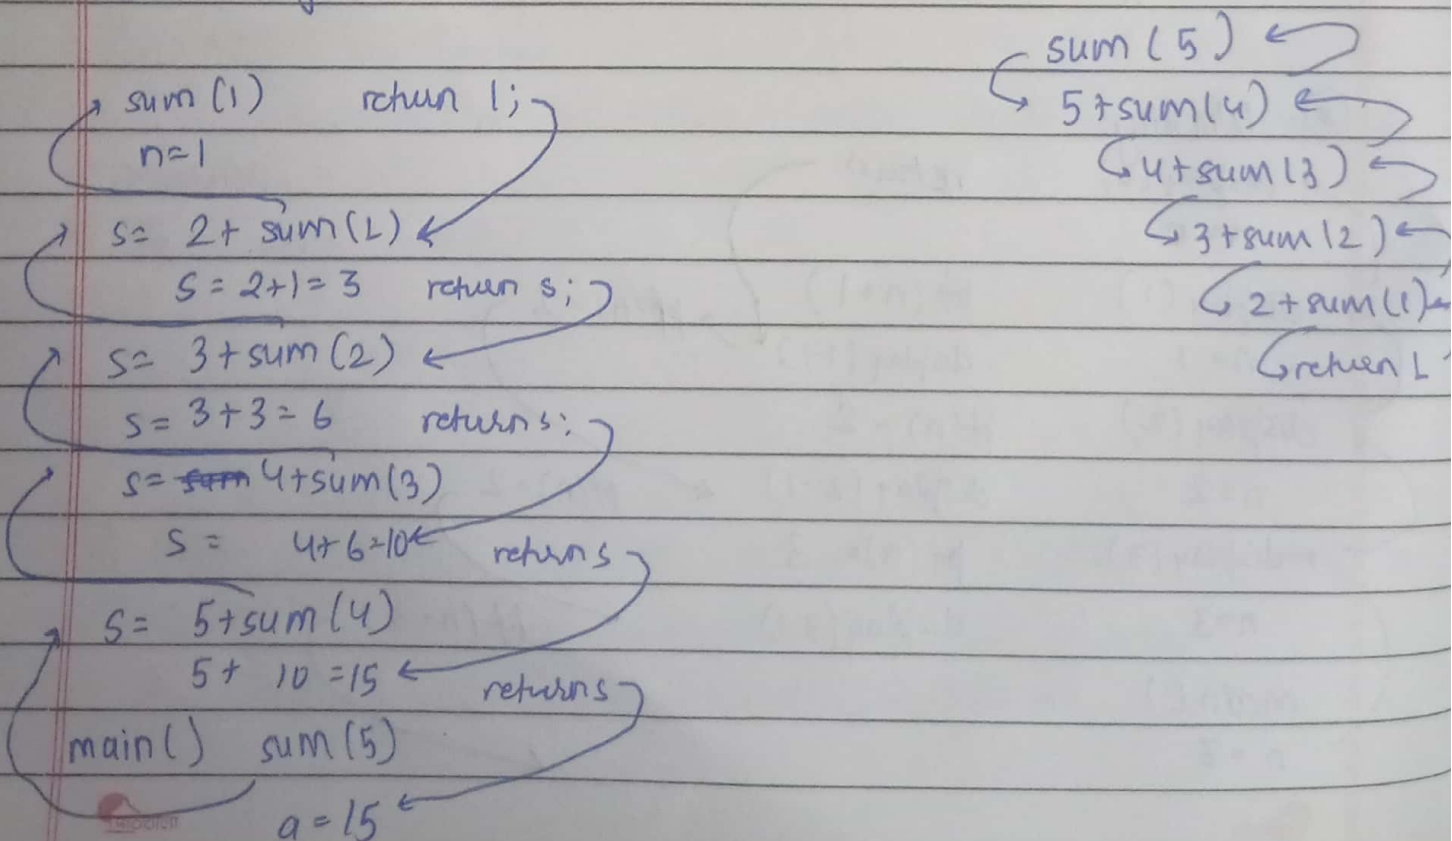 sum(1) return 1;
n=1
s= 2+ sum(1)
s = 2+1= 3 return s;
s= 3+sum(2)
s= 3+3= 6 return s;
s= 4+sum(3)
s = 4+6=10 return s
s= 5+sum(4)
5+ 10 =15 return s
main() sum(5)
a=15
sum(5)
5+sum(4)
4+sum(3)
3+sum(2)
2+sum(1)
return 1